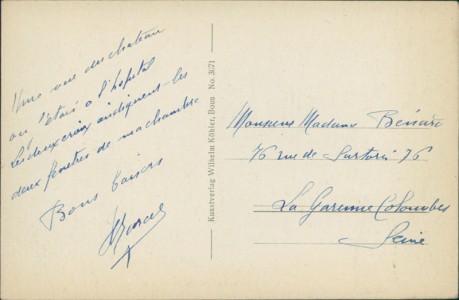 Une vue du chateau
ou j'étais a l'hopital
Les deux croix indiquent les
deux fenetres de ma chambre
Bons baisers
Kunstverlag Wilhelm Köhler, Bonn No. 3071
Monsieur Madame
76 rue de Sartoris 76
La Garenne Colombes
Seine